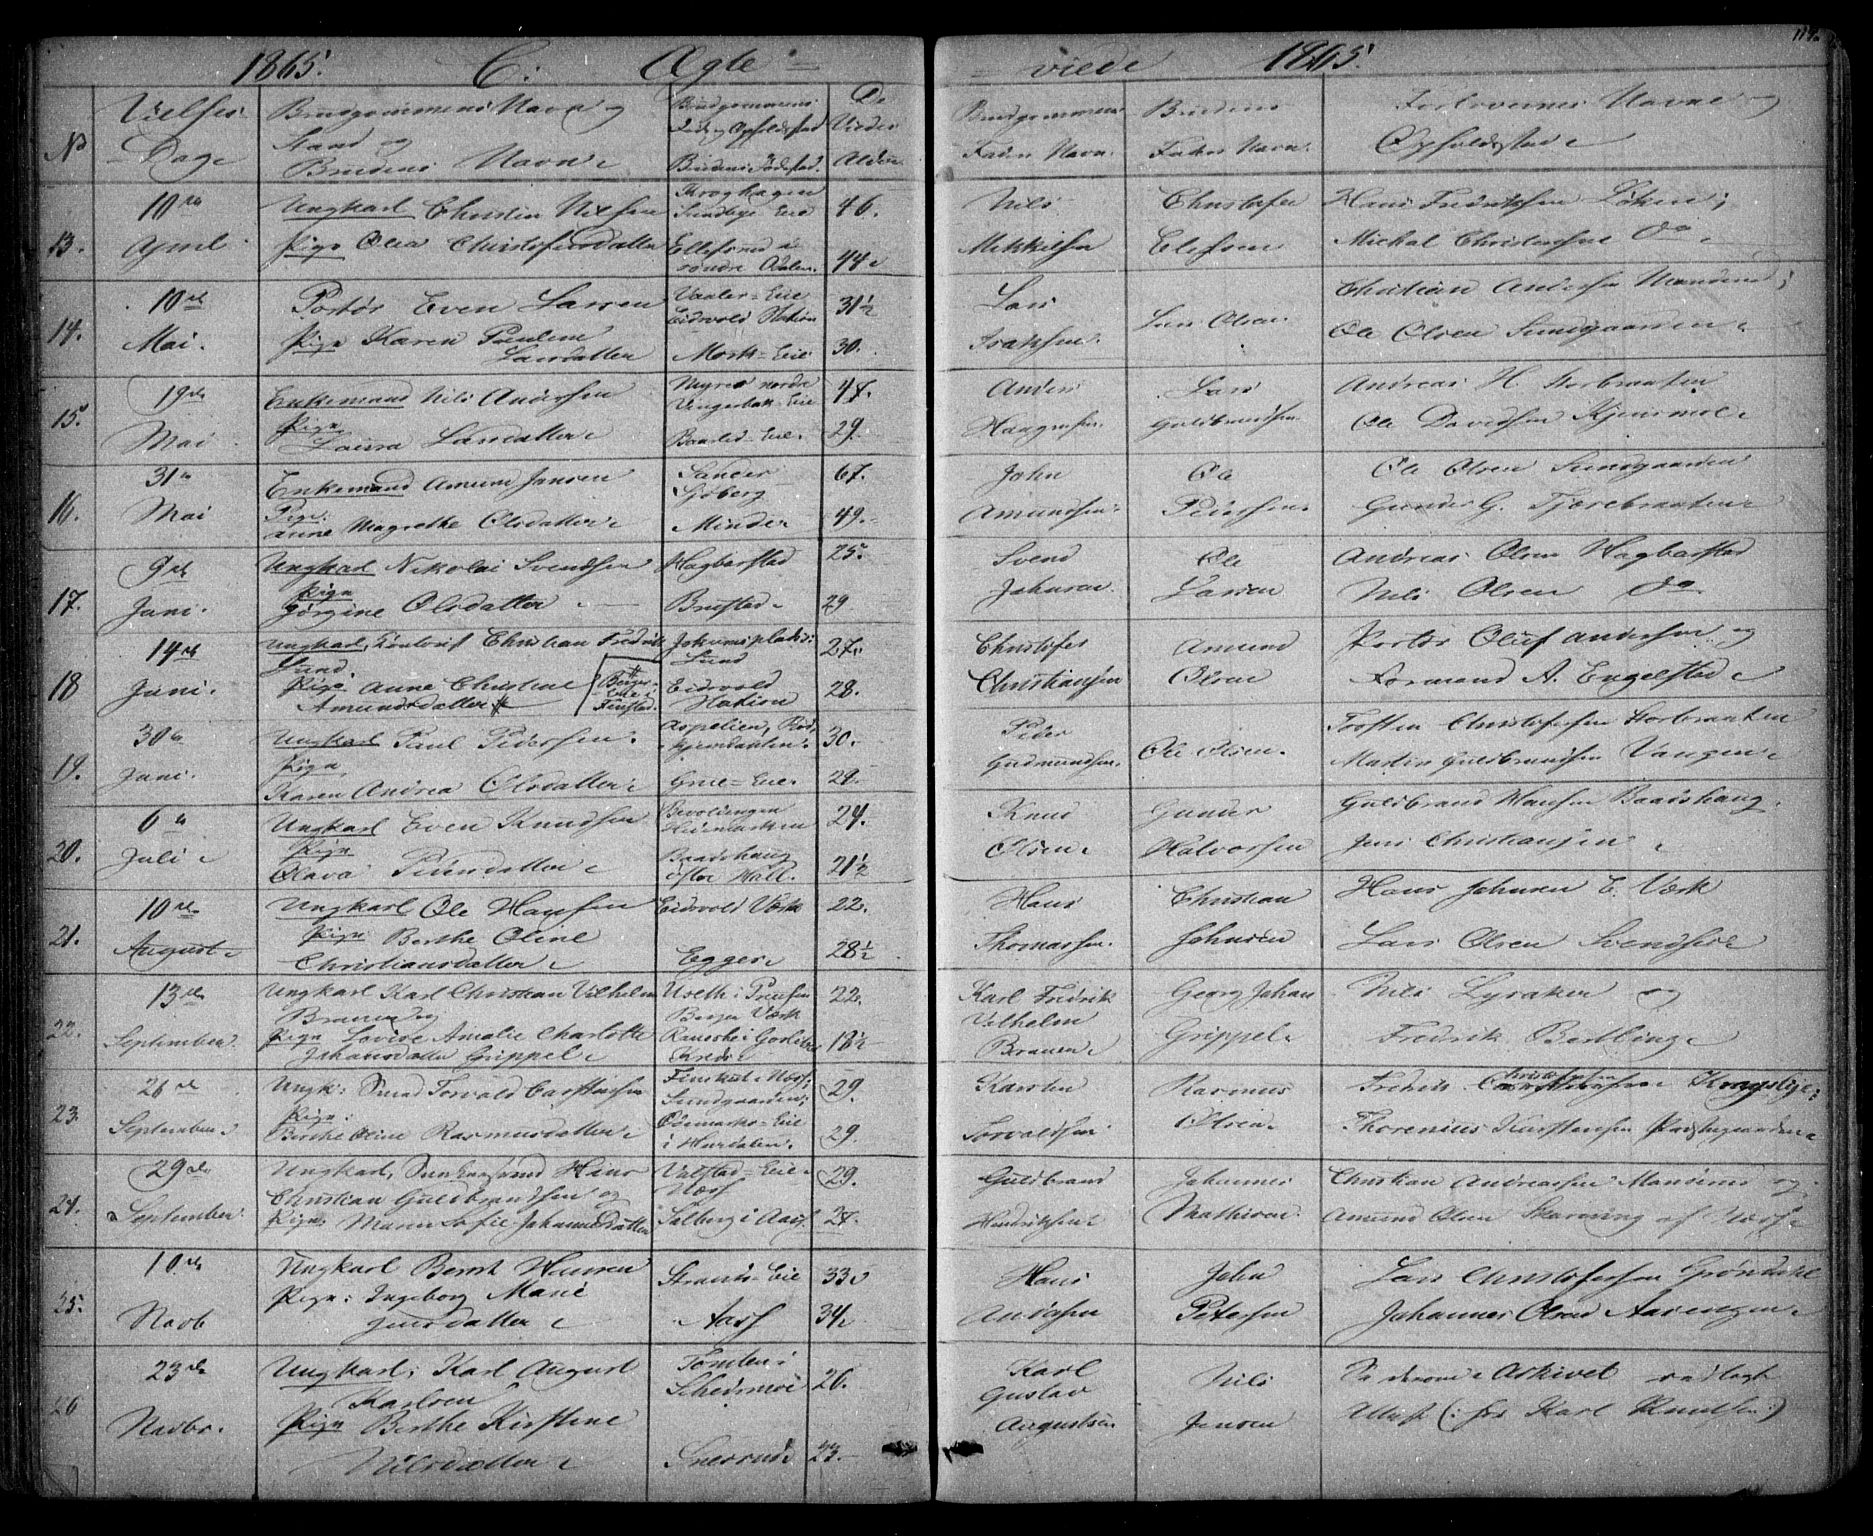 1865. C. Ægte = = viede 1865.
No
Vielses Dage
Brudgommens Navn og Stand og Brudens Navn
Brudgommens Opholdsted Brudens Fødested.
De Viedes Alder
Brudgommens Fader Navn.
Brudens Fader Navn.
Forlovernes Navne og Opholdsted
13. 10de April
Ungkarl Christen Nilsen
Pige Olea Christofersdatter
Kroghagen Sundbye Eie
søndre Odalen.
46. 44
Nils Mikkelsen
Christofer Elefsen
Hans Fredriksen Løken;
Mickal Christensen Do
14. 10de Mai.
Portør Even Larsen
Pige Karen Pauline Larsdatter
Vaaler-Eie Eidsvold Station
Mork-Eie
31½ 30.
Lars Isaksen.
Lars Olsen.
Christian Andersen Mansens;
Ole Olsen Sundgaarden
15. 19de Mai
Enkemand Nils Andersen
Pige Laura Larsdatter
Myrer nordre Eie
Baarlid-Eie.
47. 29.
Anders Haagensen.
Lars Guldbrandsen.
Andreas H. Storbraaten
Ole Davidsen
16. 31te Mai
Enkemand Amund Jansen
Pige. Anne Magrethe Olsdatter
Sander Sjøberg
Minde
67. 49.
John Amundsen.
Ole Pedersen.
Ole Olsen Sundgaarden
Gunder G. Tjærebraaten
17. 9de Juni.
Ungkarl Nikolai Svendsen
Pige Jørgine Olsdatter
Hagbarstad
Brustad.
25. 29
Svend Johnsen.
Ole Larsen
Andreas Olsen Hagbarstad
Nils Olsen Do.
18 14de Juni.
Ungkarl, Kontorist Christian Fredrik Lund.
Pige Anne Christine Amundsdatter #
# Berger Eie i Finstad.
Lund
Eidsvold Station
27. 28.
Christofer Christiansen
Amund Olsen
Portør Oluf Andersen og
Formand A. Engelstad
19. 30te Juni.
Ungkarl Paul Pedersen.
Pige. Karen Andrea Olsdatter
Aspelien,
Grue-Eie.
30. 29.
Peder Gudmundsen.
Ole Olsen.
Torsten Christofersen Storbraaten
Martin Guldbrandsen Vangen
20. 6te Juli
Ungkarl Even Knudsen
Pige Olava
Hedemarken
Baadshaug østre Hall.
24. 21½
Knud Olsen
Gunder Halvorsen
Guldbrand Hansen Baadshaug.
Jens Christiansen
21. 10de August
Ungkarl Ole Hansen
Pige. Berthe Oline Christiansdatter
Eidsvold Værk
Egge
22. 28½
Hans Thomassen.
Christian Johnsen
Hans Johnsen E. Værk
Lars Olsen
22. 13de September.
Ungkarl Karl Christian Vilhelm Brauer og
Pige Lovise Amalie Charlotte Johansdatter Grippel
Useth i Preusen Værk
22. 18½
Karl Fredrik Vilhelm Brauer
Georg Johan Grippel
Nils Lyraker og
Fredrik Bertling
23. 26de September
Ungk: Smed Torvald Carstensen
Pige: Berthe Oline Rasmusdatter
Sundgaarden;
Ødemarks-Eie i Hurdalen.
29. 29.
Karsten Torvaldsen
Rasmus Olsen
Fredrik Christofersen
Thorenius Karstensen Præstegaarden
24. 29de September
Ungkarl, Hans Christian Guldbrandsen og
Pige. Maren Sofie Johannesdatter
Valstad-Eie Næss
Solberg i Aas
29. 27.
Guldbrand Hendriksen
Johannes Mathisen.
Christian Andreassen Mansens og
Amund Olsen Skarning af Næss
25. 10de Novb
Ungkarl Bernt Hansen
Pige: Ingeborg Marie
Eie
Aas
33 34
Hans Andersen
John Petersen
Lars Christofersen Grøndahl
Johannes Olsen Aarengen
26 23de Novbr.
Ungkarl; Karl August Karlsen
Pige Berthe Kirstine Nilsdatter
Tomter i Schedsmo
26. 23.
Karl Gustav Augustsen
Nils Jensen
Arkivet
(: for Karl Knudsen:)